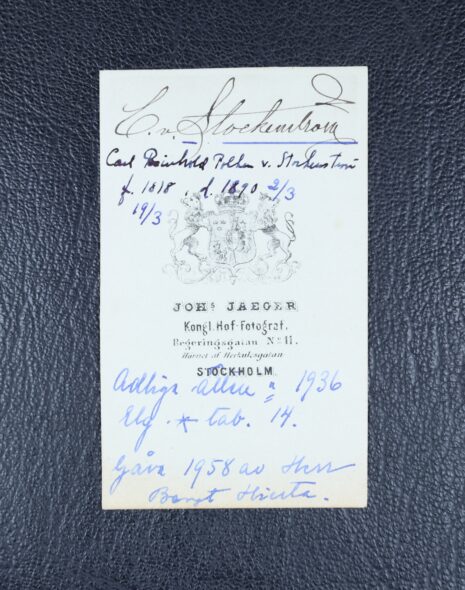 C. v. Stockenström
Carl Reinhold Polhem v. Stockenström
f. 1818. d. 1890 2/3
19/3
JOHS JAEGER
Kongl. Hof-Fotograf.
Regeringsgatan No 11.
Hörnet af Herkulesgatan
STOCKHOLM
Adliga ätten n 1936
Elg. * tab. 14.
Gåva 1958 av Herr
Bengt Hierta.